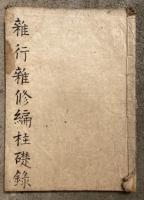 雜行雜修編柱礎錄